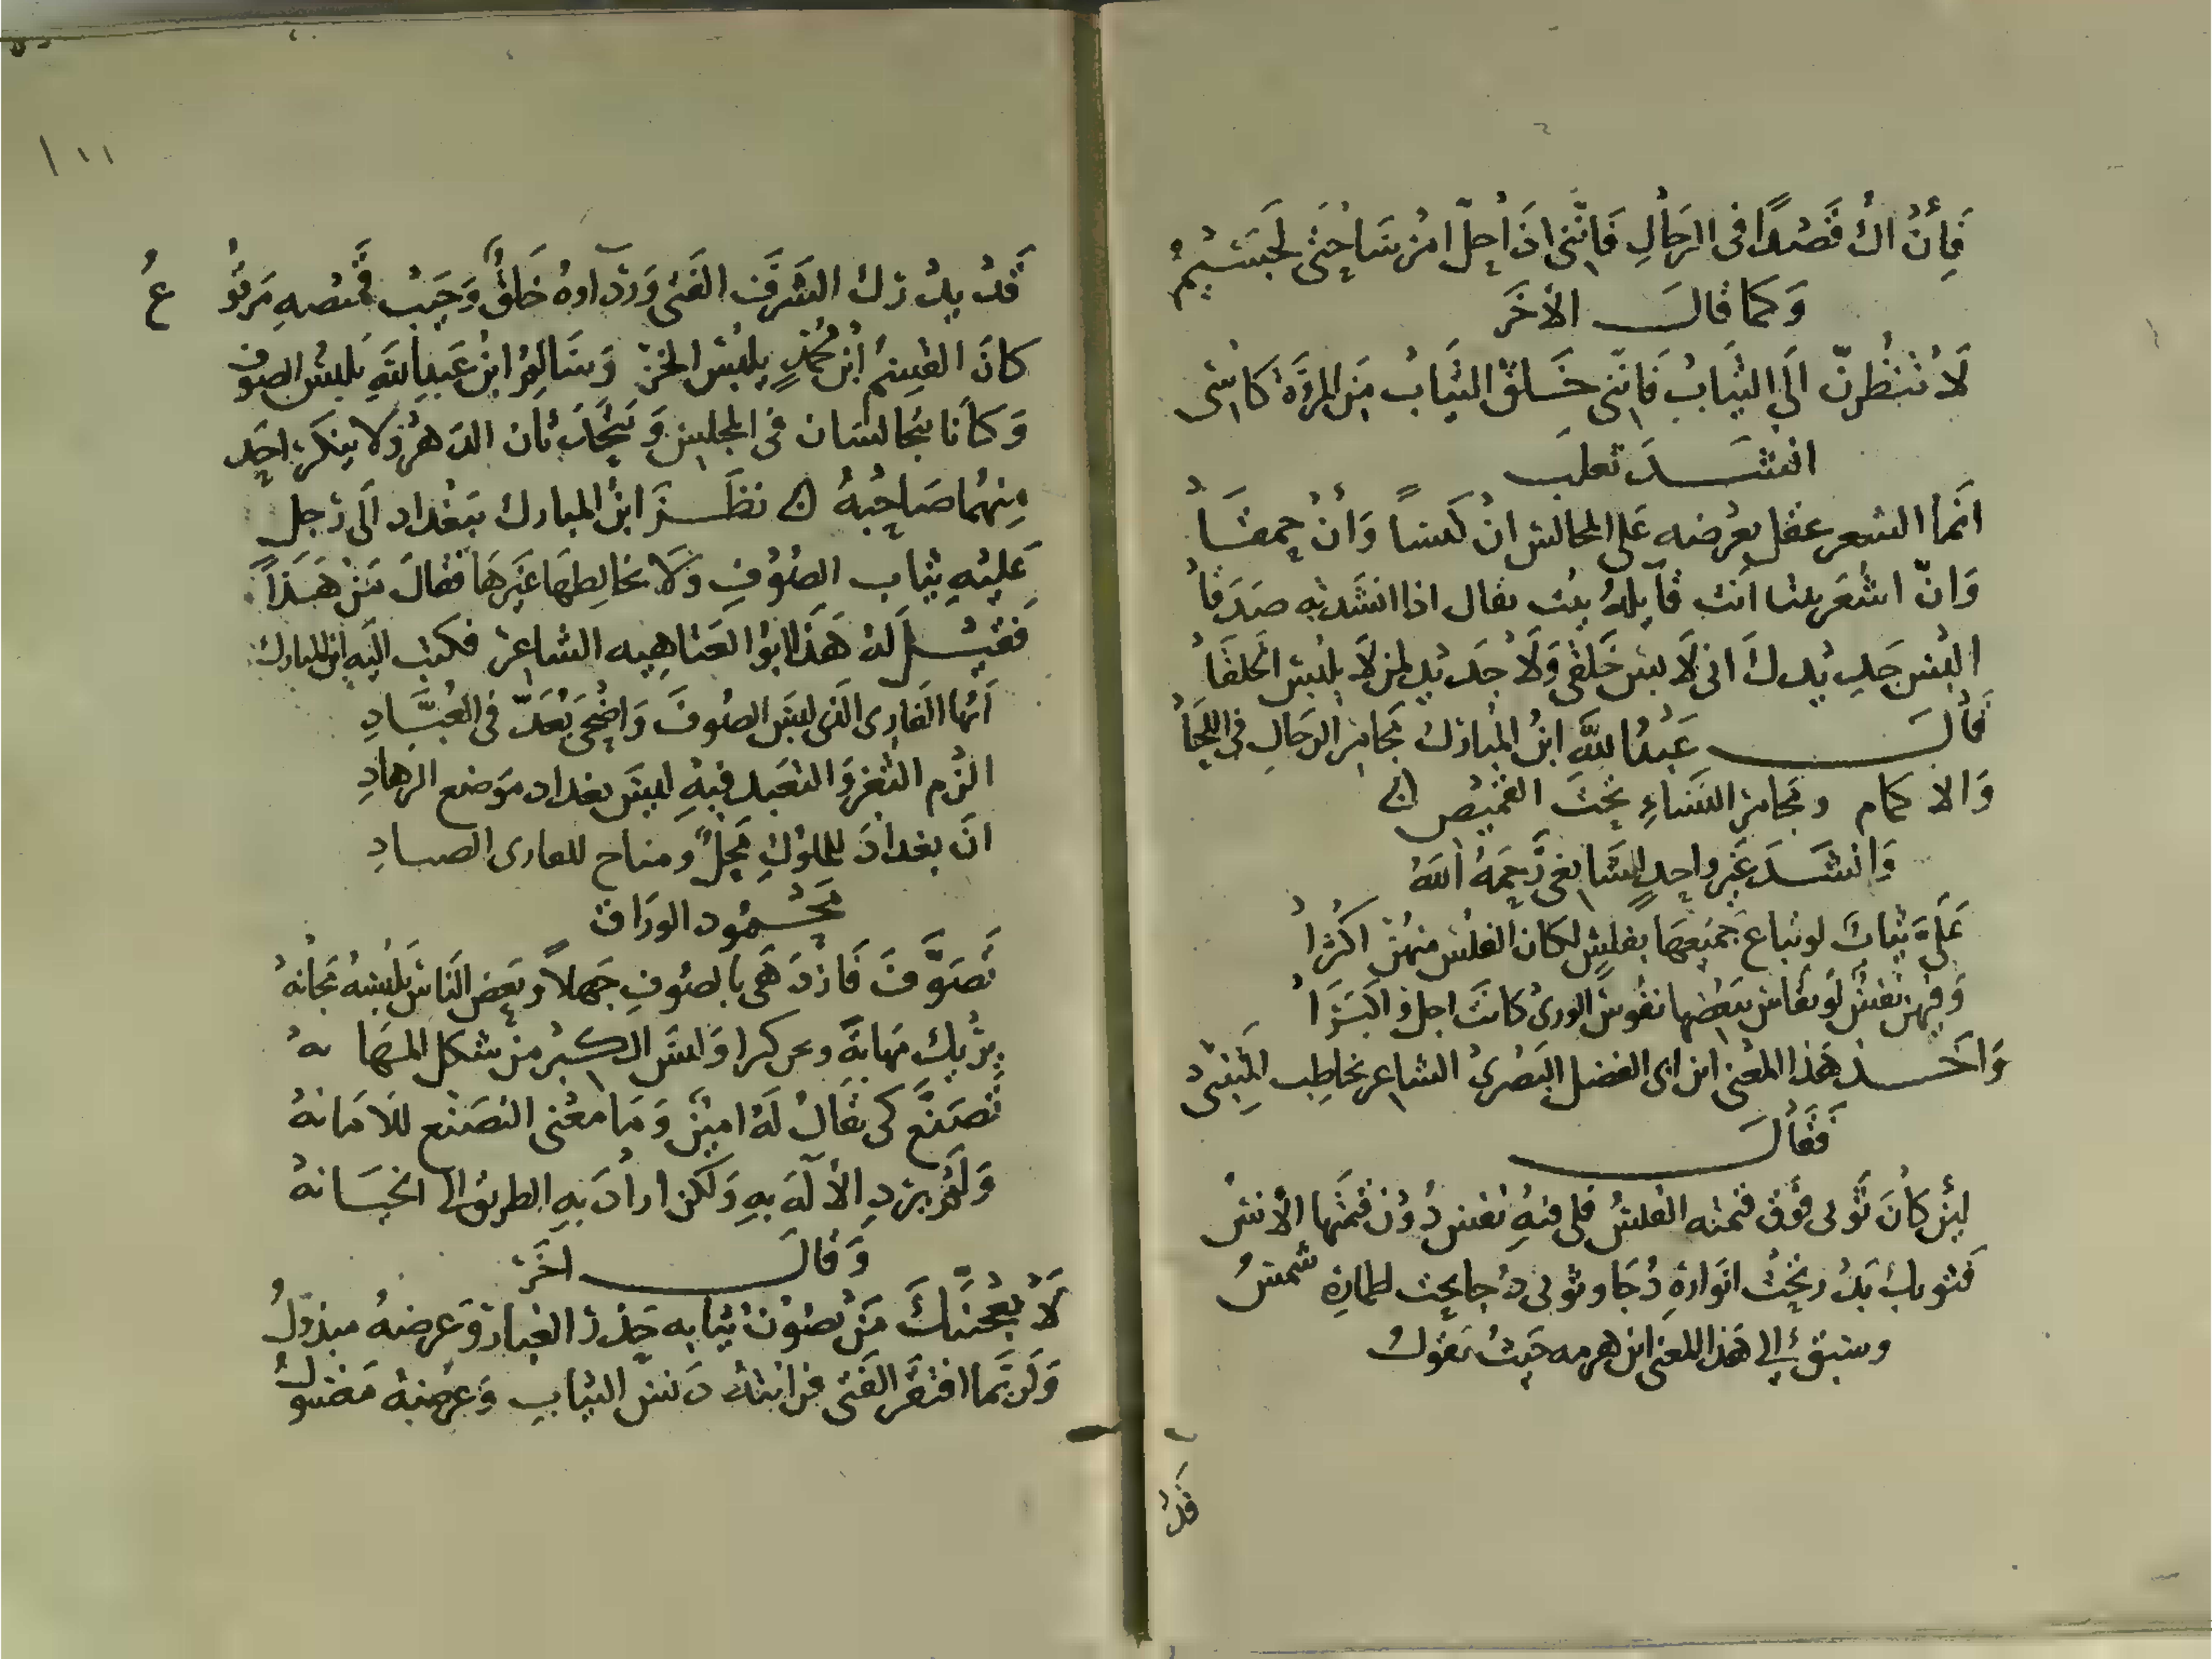 فَإِنْ اكُ قَصْدًا فى الرَجُالِ فَانّنى اذَا حلّ امْرُ سَاحَتى لَجَسَيْمُ
وَكَما قالَ الأخَر
لَا تنظُرنّ الَى الثيَابُ فَانّنى خَلقُ الثيَابُ مَنِ المرؤة كاسى
انشَدَ تعلب
انَما الشعر عقل يعْرضه عَلى المجالس انْ كَيسًا وَانْ حمقَا
وَانّ اشعَر بيتا انت قَايلهُ بيت يقال اذا انشَدته صدَقا
البس جَديدكَ انى لَا بس خَلقى وَلَا جَديد لمن لَا يلبس الخلقَا
قَالَ عَبْدُ اللَّه ابنُ المبَارَك مجامر الرجَالِ فى اللحَا
وَالا كمام ومجامر النسَاءِ تحْتَ القميْص
وَانشَدَ غيَر واحِدٍ للشَافعى رَحَمهُ اللَّهُ
عَلَىّ ثيابٌ لو تباع جَميَعهَا بفلسٍ لكان الفلس منهُن اكثرَا
وَفيهن نفسٌ لَو تقَاس ببعضها نفُوس الورى كانَت اجل واكبَرَا
وَاخَذ هَذا المعْنى ابن ابى الفضل البَصْرى الشاعر يخاطِب المتَنبى
فَقَالَ
ليْن كانَ ثَوبى فَوق قيمته الفلسُ فلى فيهِ نفس دُوْن قيمَتها الأنسُ
فثوبك بَدْر تحْتُ انوارهِ دُجَا وثوبى دُجا تحت اطمارِهِ شمسُ
وسبق الى هَذا المعنى ابن هرمه حَيث يَقولُ
قَدْ
١١١
قَدْ يدْرك الشرَفَ الفتَى وَرِدَاوهُ خَلقٌ وَجَيبُ قميصهِ مَرقُوعُ
كانَ القسِمُ ابْن محُمدٍ يلبَس الخز وَسَالِمُ ابنْ عَبدِ اللَّهِ يَلبسُ الصوف
وَكانَا يتجالسَان فى المجلِس وَيتحَدثان الدَهرْ وَلا ينكر احَد
مِنهُما صَاحبُهُ نظَرَ ابنُ المبارك ببَغْداد الَى رَجل
عَليْهِ ثيَاب الصُوْفِ وَلَا يخالِطهَا غيَرهَا فقالَ مَنْ هَذَا
فَقيْلَ لَهْ هَذا ابو العَتاهِيه الشاعرْ فكتب اليَهِ ابن المبارك
اَيُها القَارى الَذى لبسَ الصُوفَ وَاضْحَى يُعَدّ فى العُبَّادِ
الزم الثغر وَالتعَبد فيهِ ليسَ بغداد موَضع الزهادِ
انَ بغدادَ للملوكِ محَلٌ ومناخ للقارى الصيادِ
مَحْمود الورَاق
تَصَوَّفَ فَازْدَهَى بالصُوفِ جَهلاً وبَعض النَاسَ يَلبسهُ مَجَانهُ
يرْيك مَهانةً وتحن كبرا وَليسَ الكبْر من شكل المهَانهْ
تصَنَّع كى يقَالْ لَهُ اميْنٌ وَمَا مَعْنى التصَنع للَامَانهُ
وَلَمْ يرد الألَهَ بهِ وَلَكن ارادَ بهِ الطريق الى الخيَانهُ
وَقالَ اخَر
لَا يعْجبَنَّكَ مَنْ يصُوْن ثيَابه حَذر الغبَار وَعرضهُ مبذولُ
وَلَربَما افتقَر الفَتى فرَايتهُ دَنس الثياب وَعرْضهُ مَغسُولُ